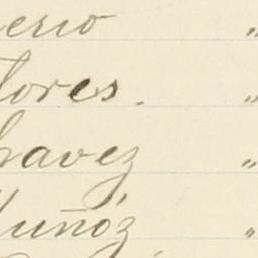 erio "
lores. "
havez "
uñóz "